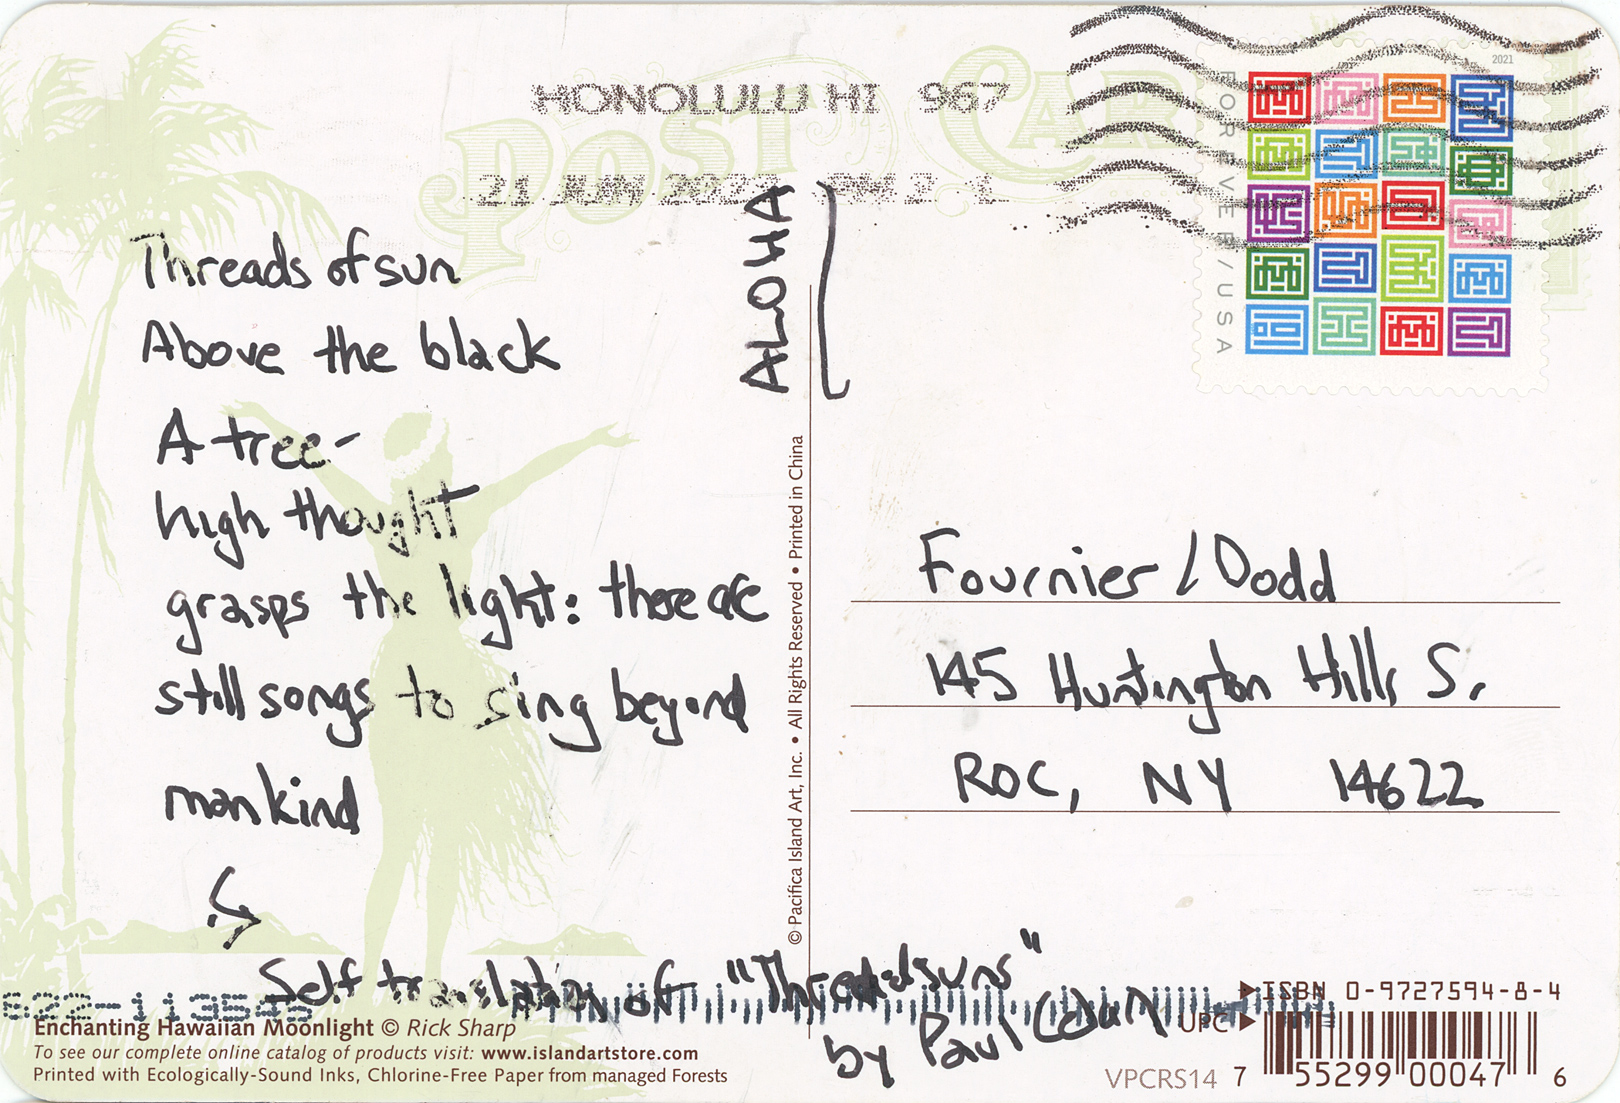 POST CAR
HONOLULU HI 967
21 JUN 2022 PM 2 L
2021
FOREVER/USA
ALOHA
Threads of sun
Above the black
A tree-
high thought
grasps the light: there are
still songs to sing beyond
mankind
Self translation of "Threadsuns"
by Paul Celan
Fournier / Dodd
145 Huntington Hills S.
ROC, NY 14622
© Pacifica Island Art, Inc. • All Rights Reserved • Printed in China
Enchanting Hawaiian Moonlight © Rick Sharp
To see our complete online catalog of products visit: www.islandartstore.com
Printed with Ecologically-Sound Inks, Chlorine-Free Paper from managed Forests
ISBN 0-9727594-8-4
UPC
VPCRS14 7 55299 00047 6